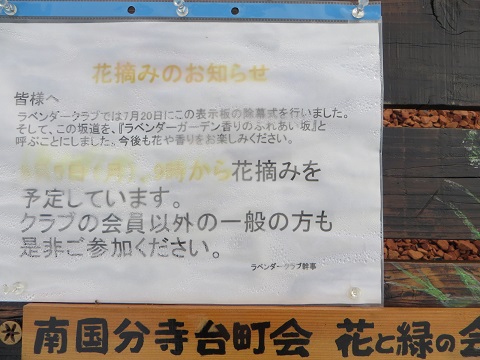 花摘みのお知らせ
皆様へ
ラベンダークラブでは7月20日にこの表示板の除幕式を行いました。
そして、この坂道を、『ラベンダーガーデン香りのふれあい坂』と
呼ぶことにしました。今後も花や香りをお楽しみください。
日(月)、9時から花摘みを
予定しています。
クラブの会員以外の一般の方も
是非ご参加ください。
ラベンダークラブ幹事
南国分寺台町会 花と緑の会